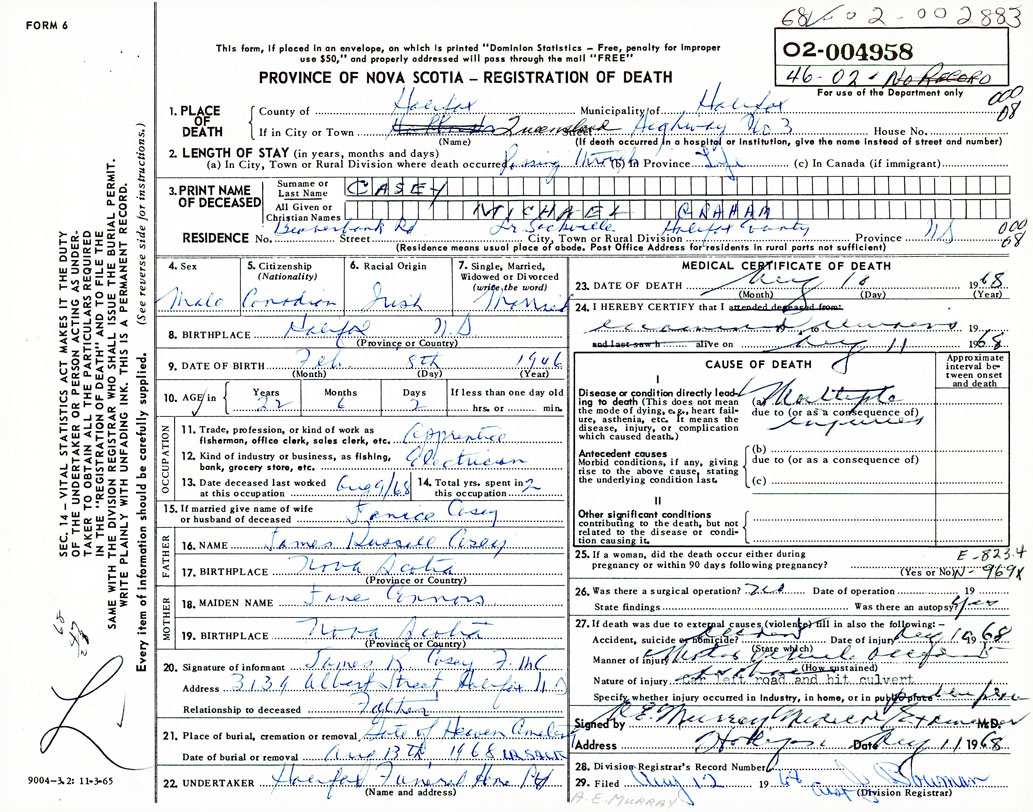 FORM 6
68 02-002883
This form, if placed in an envelope, on which is printed "Dominion Statistics – Free, penalty for improper
use $50," and properly addressed will pass through the mail "FREE"
02-004958
46-02- No RECORD
For use of the Department only
PROVINCE OF NOVA SCOTIA – REGISTRATION OF DEATH
000
08
1. PLACE OF DEATH
County of Halifax Municipality of Halifax
If in City or Town Queensland Street Highway No 3 House No.
(Name) (If death occurred in a hospital or institution, give the name instead of street and number)
2. LENGTH OF STAY (in years, months and days)
(a) In City, Town or Rural Division where death occurred Passing through (b) In Province Life (c) In Canada (if immigrant)
3. PRINT NAME OF DECEASED
Surname or Last Name CASEY
All Given or Christian Names MICHAEL GRAHAM
RESIDENCE No. Beaverbank Rd Street Lr Sackville City, Town or Rural Division Halifax County Province NS
000
68
(Residence means usual place of abode. Post Office Address for residents in rural parts not sufficient)
4. Sex Male
5. Citizenship (Nationality) Canadian
6. Racial Origin Irish
7. Single, Married, Widowed or Divorced (write the word) Married
8. BIRTHPLACE Halifax N.S
(Province or Country)
9. DATE OF BIRTH Feb. 8th 1946
(Month) (Day) (Year)
10. AGE in Years 22 Months 6 Days 2 If less than one day old hrs. or min.
OCCUPATION
11. Trade, profession, or kind of work as fisherman, office clerk, sales clerk, etc. Apprentice
12. Kind of industry or business, as fishing, bank, grocery store, etc. Electrician
13. Date deceased last worked at this occupation Aug 9/68
14. Total yrs. spent in this occupation 2
15. If married give name of wife or husband of deceased Janice Casey
FATHER
16. NAME James Russell Casey
17. BIRTHPLACE Nova Scotia
(Province or Country)
MOTHER
18. MAIDEN NAME Jane Connors
19. BIRTHPLACE Nova Scotia
(Province or Country)
20. Signature of informant James R. Casey
Address 3139 Albert Street Halifax N.S
Relationship to deceased Father
21. Place of burial, cremation or removal Gate of Heaven Cemetery
Date of burial or removal Aug 13th 1968 LR. SACK
22. UNDERTAKER Halifax Funeral Home
(Name and address)
MEDICAL CERTIFICATE OF DEATH
23. DATE OF DEATH Aug 10 1968
(Month) (Day) (Year)
24. I HEREBY CERTIFY that I attended deceased from:
examined remains 19
and last saw h alive on Aug 11 1968
CAUSE OF DEATH
Approximate interval between onset and death
I
Disease or condition directly leading to death (This does not mean the mode of dying, e.g., heart failure, asthenia, etc. It means the disease, injury, or complication which caused death.)
(a) Multiple
due to (or as a consequence of)
injuries
Antecedent causes
Morbid conditions, if any, giving rise to the above cause, stating the underlying condition last.
(b)
due to (or as a consequence of)
(c)
II
Other significant conditions
contributing to the death, but not related to the disease or condition causing it.
25. If a woman, did the death occur either during pregnancy or within 90 days following pregnancy?
(Yes or No)
E-823.4
N-969X
26. Was there a surgical operation? No Date of operation 19
State findings Was there an autopsy? Yes
27. If death was due to external causes (violence) fill in also the following:–
Accident, suicide or homicide? Accident Date of injury Aug 10 1968
(State which)
Manner of injury Motor Vehicle accident
(How sustained)
Nature of injury Car left road and hit culvert
Specify whether injury occurred in Industry, in home, or in public place
Signed by R.E. Murray Medical Examiner M.D.
Address Date Aug 11 1968
28. Division Registrar's Record Number
29. Filed Aug 12 19 68 Bowman
(Division Registrar)
A.E. MURRAY
SEC. 14 – VITAL STATISTICS ACT MAKES IT THE DUTY
OF THE UNDERTAKER OR PERSON ACTING AS UNDER-
TAKER TO OBTAIN ALL THE PARTICULARS REQUIRED
IN THE "REGISTRATION OF DEATH" AND TO FILE THE
SAME WITH THE DIVISION REGISTRAR WHO SHALL ISSUE THE BURIAL PERMIT.
WRITE PLAINLY WITH UNFADING INK. THIS IS A PERMANENT RECORD.
Every item of information should be carefully supplied. (See reverse side for instructions.)
9004-3.2: 11-3-65